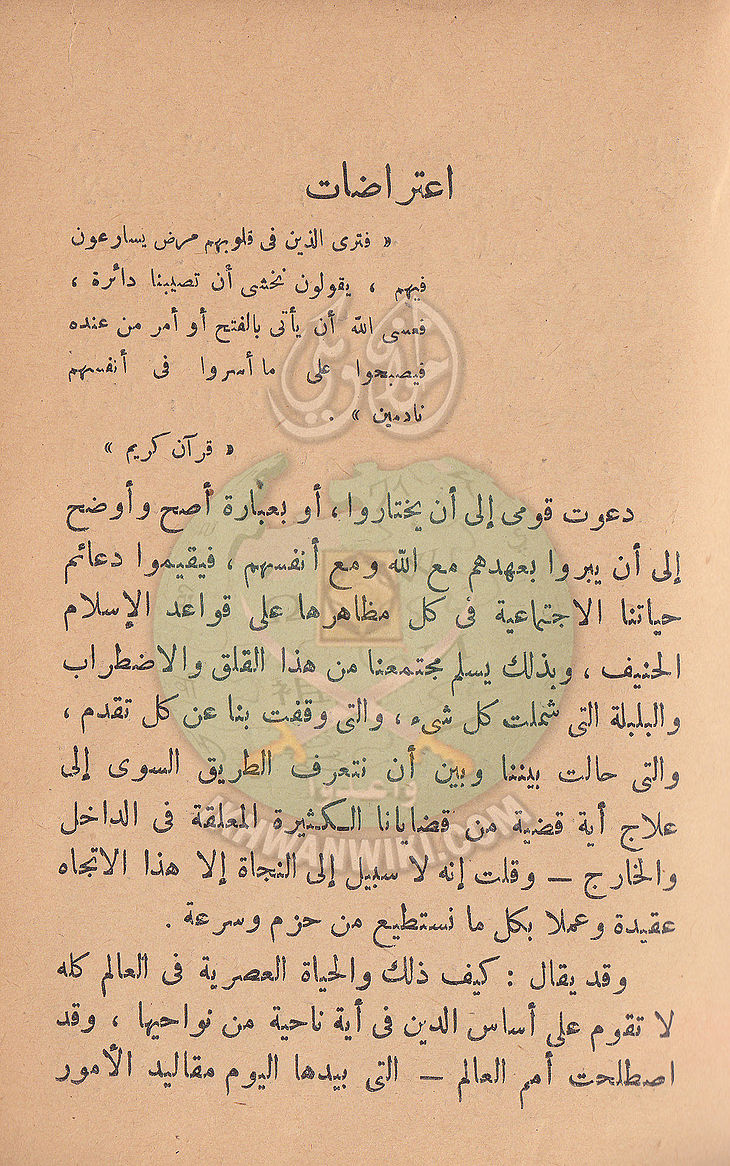 اعتراضات
« فترى الذين فى قلوبهم مرض يسارعون
فيهم ، يقولون نخشى أن تصيبنا دائرة ،
فعسى الله أن يأتى بالفتح أو أمر من عنده
فيصبحوا على ما أسروا فى أنفسهم
نادمين » .
« قرآن كريم »
دعوت قومى إلى أن يختاروا ، أو بعبارة أصح وأوضح
إلى أن يبروا بعهدهم مع الله ومع أنفسهم ، فيقيموا دعائم
حياتنا الاجتماعية فى كل مظاهرها على قواعد الإسلام
الحنيف ، وبذلك يسلم مجتمعنا من هذا القلق والاضطراب
والبلبلة التى شملت كل شىء ، والتى وقفت بنا عن كل تقدم ،
والتى حالت بيننا وبين أن نتعرف الطريق السوى إلى
علاج أية قضية من قضايانا الكثيرة المعلقة فى الداخل
والخارج — وقلت إنه لا سبيل إلى النجاة إلا هذا الاتجاه
عقيدة وعملا بكل ما نستطيع من حزم وسرعة .
وقد يقال : كيف ذلك والحياة العصرية فى العالم كله
لا تقوم على أساس الدين فى أية ناحية من نواحيها ، وقد
اصطلحت أمم العالم — التى بيدها اليوم مقاليد الأمور
وأعدوا
IKHWANWIKI.COM